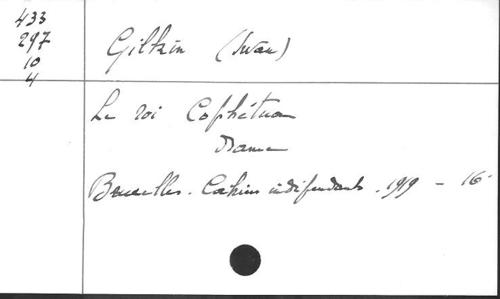 433
297
10
4
Gilkin (Iwan)
Le roi Cophétua
Drame
Bruxelles. Cahiers indépendants. 1919 - 16°